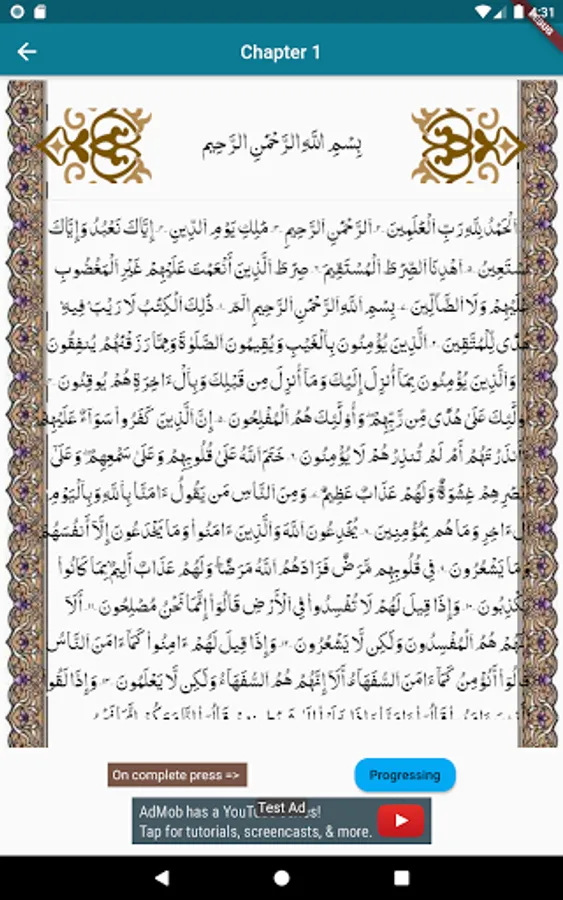 4:31
Chapter 1
بِسْمِ اللَّهِ الرَّحْمَٰنِ الرَّحِيمِ
الْحَمْدُ لِلَّهِ رَبِّ الْعَٰلَمِينَ ۝ الرَّحْمَٰنِ الرَّحِيمِ ۝ مَٰلِكِ يَوْمِ الدِّينِ ۝ إِيَّاكَ نَعْبُدُ وَإِيَّاكَ
نَسْتَعِينُ ۝ اهْدِنَا الصِّرَٰطَ الْمُسْتَقِيمَ ۝ صِرَٰطَ الَّذِينَ أَنْعَمْتَ عَلَيْهِمْ غَيْرِ الْمَغْضُوبِ
عَلَيْهِمْ وَلَا الضَّآلِّينَ ۝ بِسْمِ اللَّهِ الرَّحْمَٰنِ الرَّحِيمِ الٓمٓ ۝ ذَٰلِكَ الْكِتَٰبُ لَا رَيْبَ ۛ فِيهِ ۛ
هُدًى لِّلْمُتَّقِينَ ۝ الَّذِينَ يُؤْمِنُونَ بِالْغَيْبِ وَيُقِيمُونَ الصَّلَوٰةَ وَمِمَّا رَزَقْنَٰهُمْ يُنفِقُونَ
۝ وَالَّذِينَ يُؤْمِنُونَ بِمَآ أُنزِلَ إِلَيْكَ وَمَآ أُنزِلَ مِن قَبْلِكَ وَبِالْءَاخِرَةِ هُمْ يُوقِنُونَ ۝
أُو۟لَٰٓئِكَ عَلَىٰ هُدًى مِّن رَّبِّهِمْ ۖ وَأُو۟لَٰٓئِكَ هُمُ الْمُفْلِحُونَ ۝ إِنَّ الَّذِينَ كَفَرُوا۟ سَوَآءٌ عَلَيْهِمْ
ءَأَنذَرْتَهُمْ أَمْ لَمْ تُنذِرْهُمْ لَا يُؤْمِنُونَ ۝ خَتَمَ اللَّهُ عَلَىٰ قُلُوبِهِمْ وَعَلَىٰ سَمْعِهِمْ ۖ وَعَلَىٰٓ
أَبْصَٰرِهِمْ غِشَٰوَةٌ ۖ وَلَهُمْ عَذَابٌ عَظِيمٌ ۝ وَمِنَ النَّاسِ مَن يَقُولُ ءَامَنَّا بِاللَّهِ وَبِالْيَوْمِ
الْءَاخِرِ وَمَا هُم بِمُؤْمِنِينَ ۝ يُخَٰدِعُونَ اللَّهَ وَالَّذِينَ ءَامَنُوا۟ وَمَا يَخْدَعُونَ إِلَّآ أَنفُسَهُمْ
وَمَا يَشْعُرُونَ ۝ فِى قُلُوبِهِم مَّرَضٌ فَزَادَهُمُ اللَّهُ مَرَضًا ۖ وَلَهُمْ عَذَابٌ أَلِيمٌۢ بِمَا كَانُوا۟
يَكْذِبُونَ ۝ وَإِذَا قِيلَ لَهُمْ لَا تُفْسِدُوا۟ فِى الْأَرْضِ قَالُوٓا۟ إِنَّمَا نَحْنُ مُصْلِحُونَ ۝ أَلَآ
إِنَّهُمْ هُمُ الْمُفْسِدُونَ وَلَٰكِن لَّا يَشْعُرُونَ ۝ وَإِذَا قِيلَ لَهُمْ ءَامِنُوا۟ كَمَآ ءَامَنَ النَّاسُ
قَالُوٓا۟ أَنُؤْمِنُ كَمَآ ءَامَنَ السُّفَهَآءُ ۗ أَلَآ إِنَّهُمْ هُمُ السُّفَهَآءُ وَلَٰكِن لَّا يَعْلَمُونَ ۝ وَإِذَا لَقُوا۟
On complete press =>
Progressing
Test Ad
AdMob has a
Tap for tutorials, screencasts, & more.